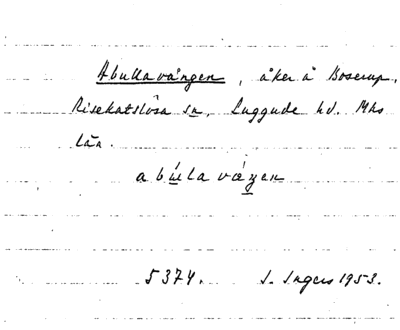 Abullavången, åker å Boserup,
Risekatslösa sn, Luggude hd. Mhs
län.
abúla væŋen
5374. S. Ingers 1953.